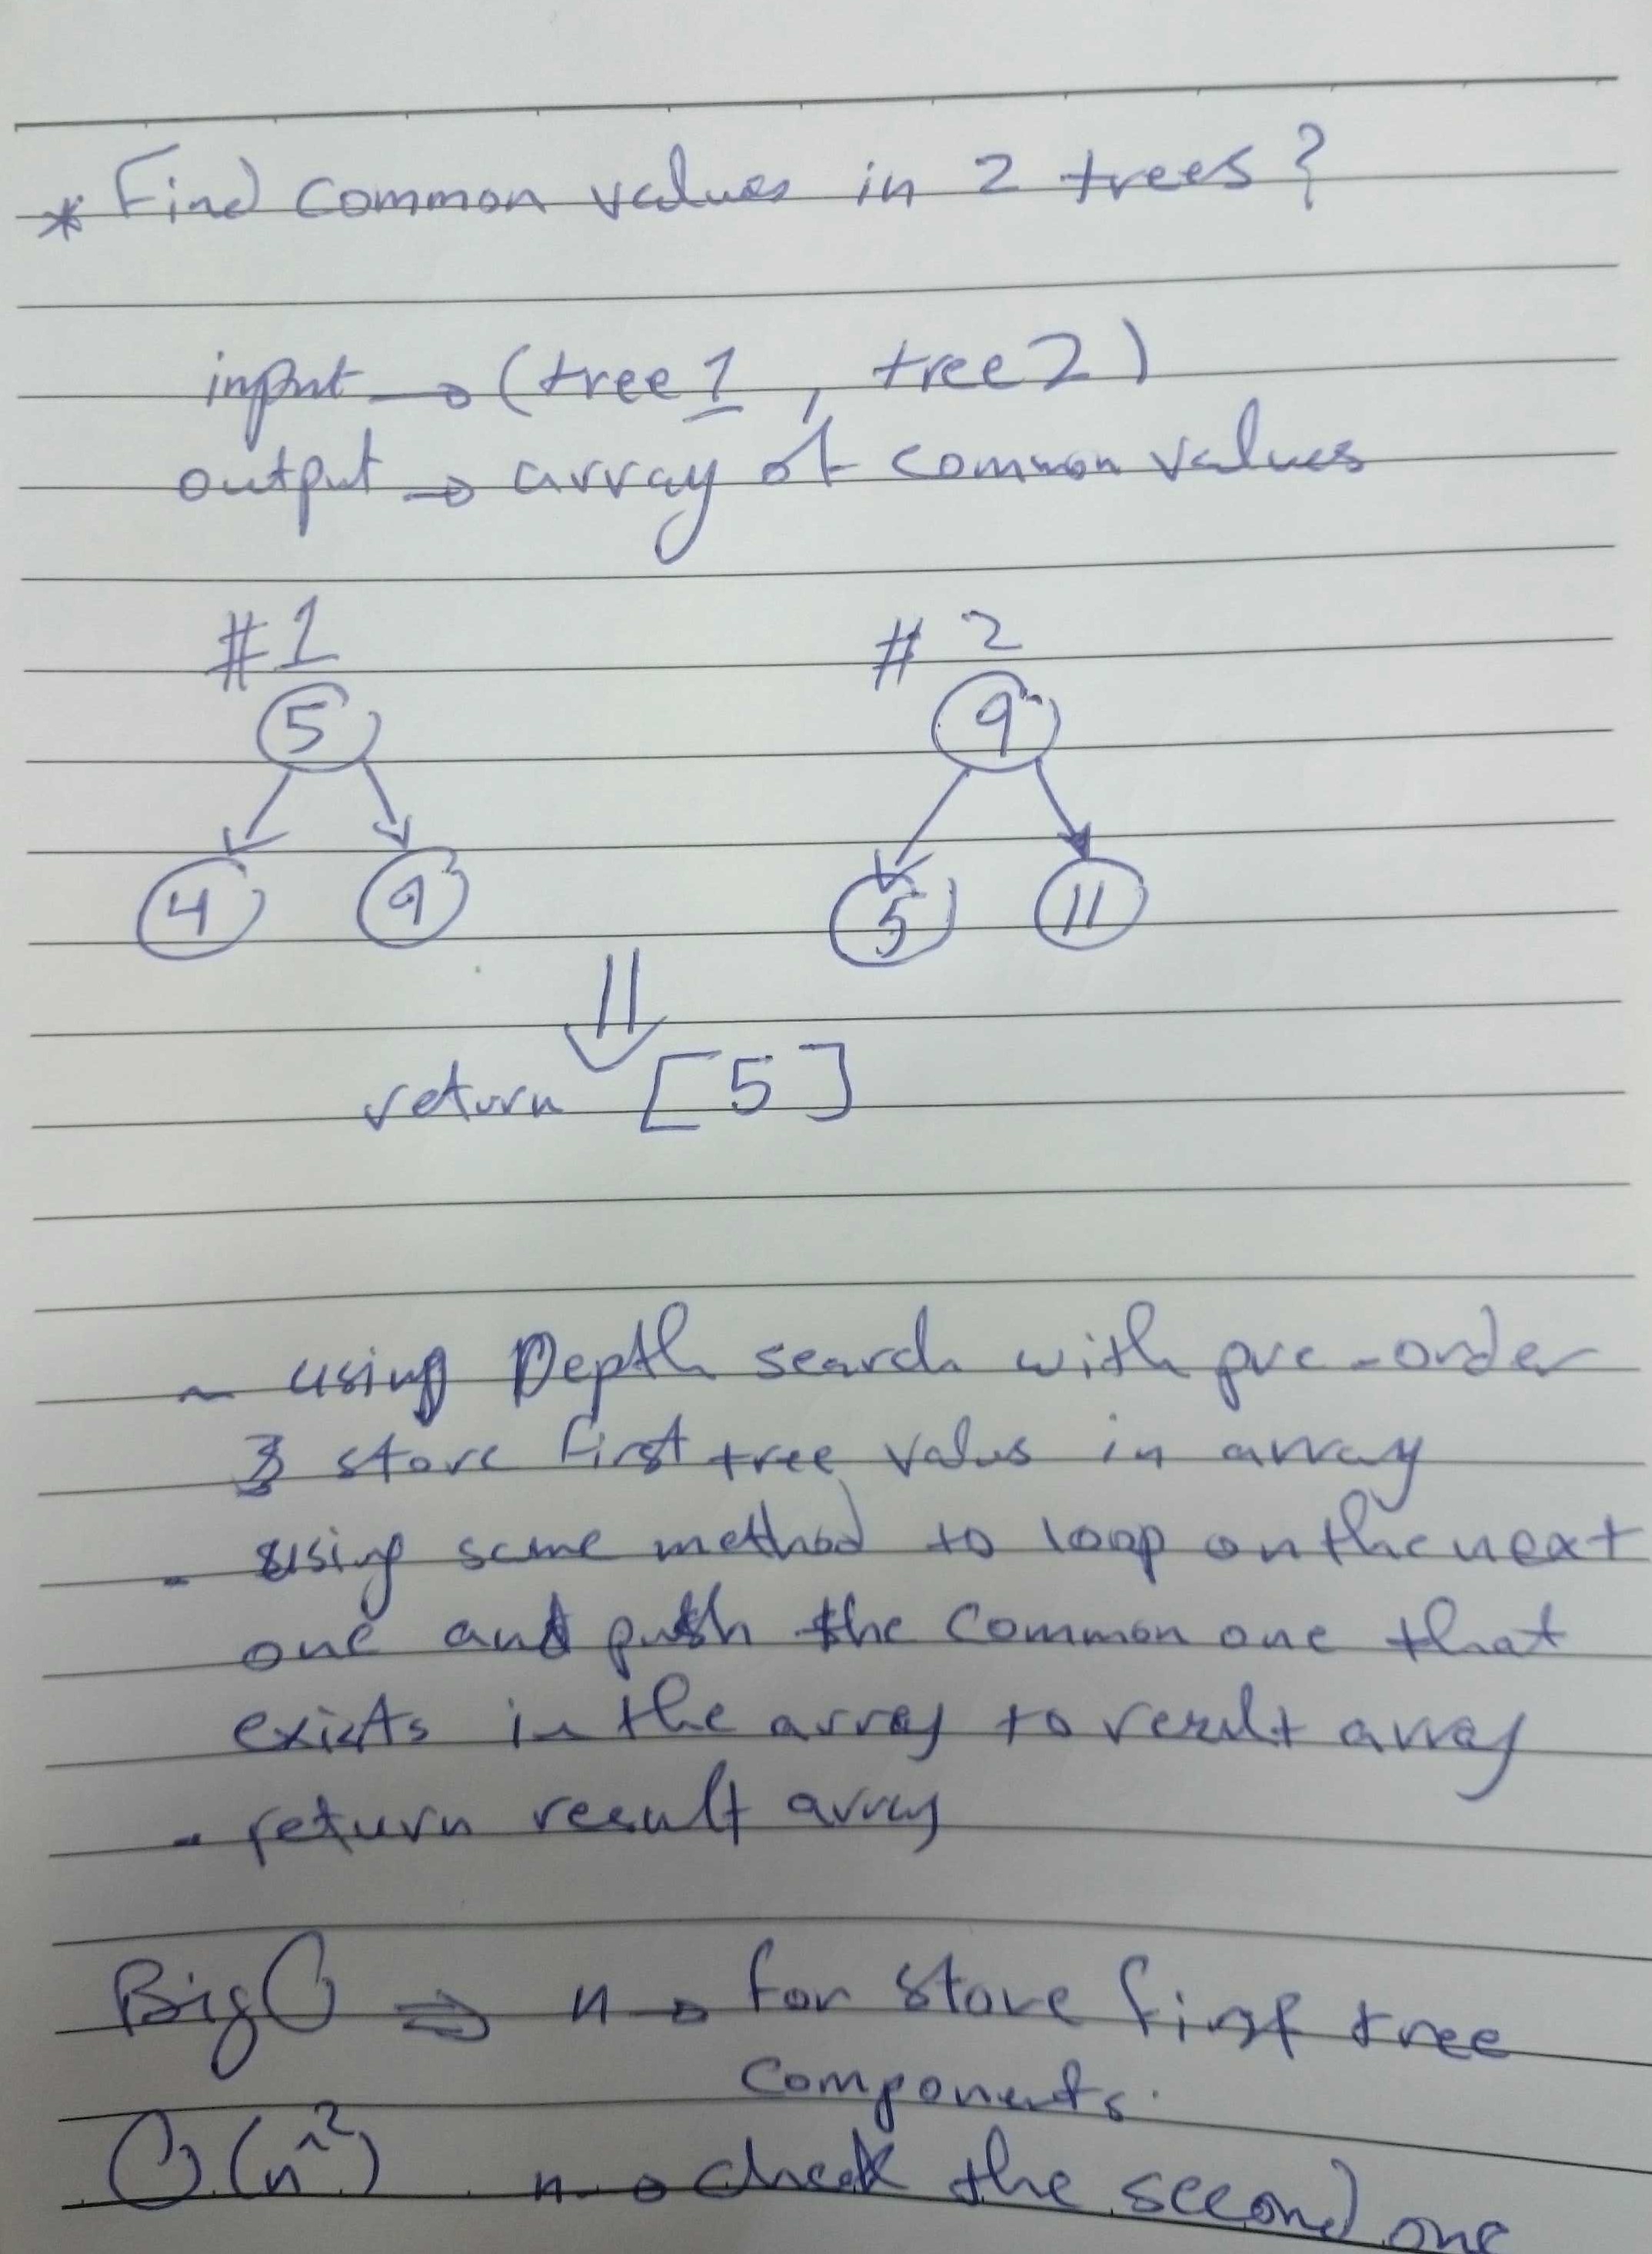 * Find common values in 2 trees?
input → (tree 1, tree 2)
output → array of common values
#1 # 2
5 9
4 9 5 11
return [5]
- using Depth search with pre-order
& store first tree values in array
- using same method to loop on the next
one and push the common one that
exists in the array to result array
- return result array
Big O ⇒ n → for store first tree
components.
O(n^2) n → check the second one